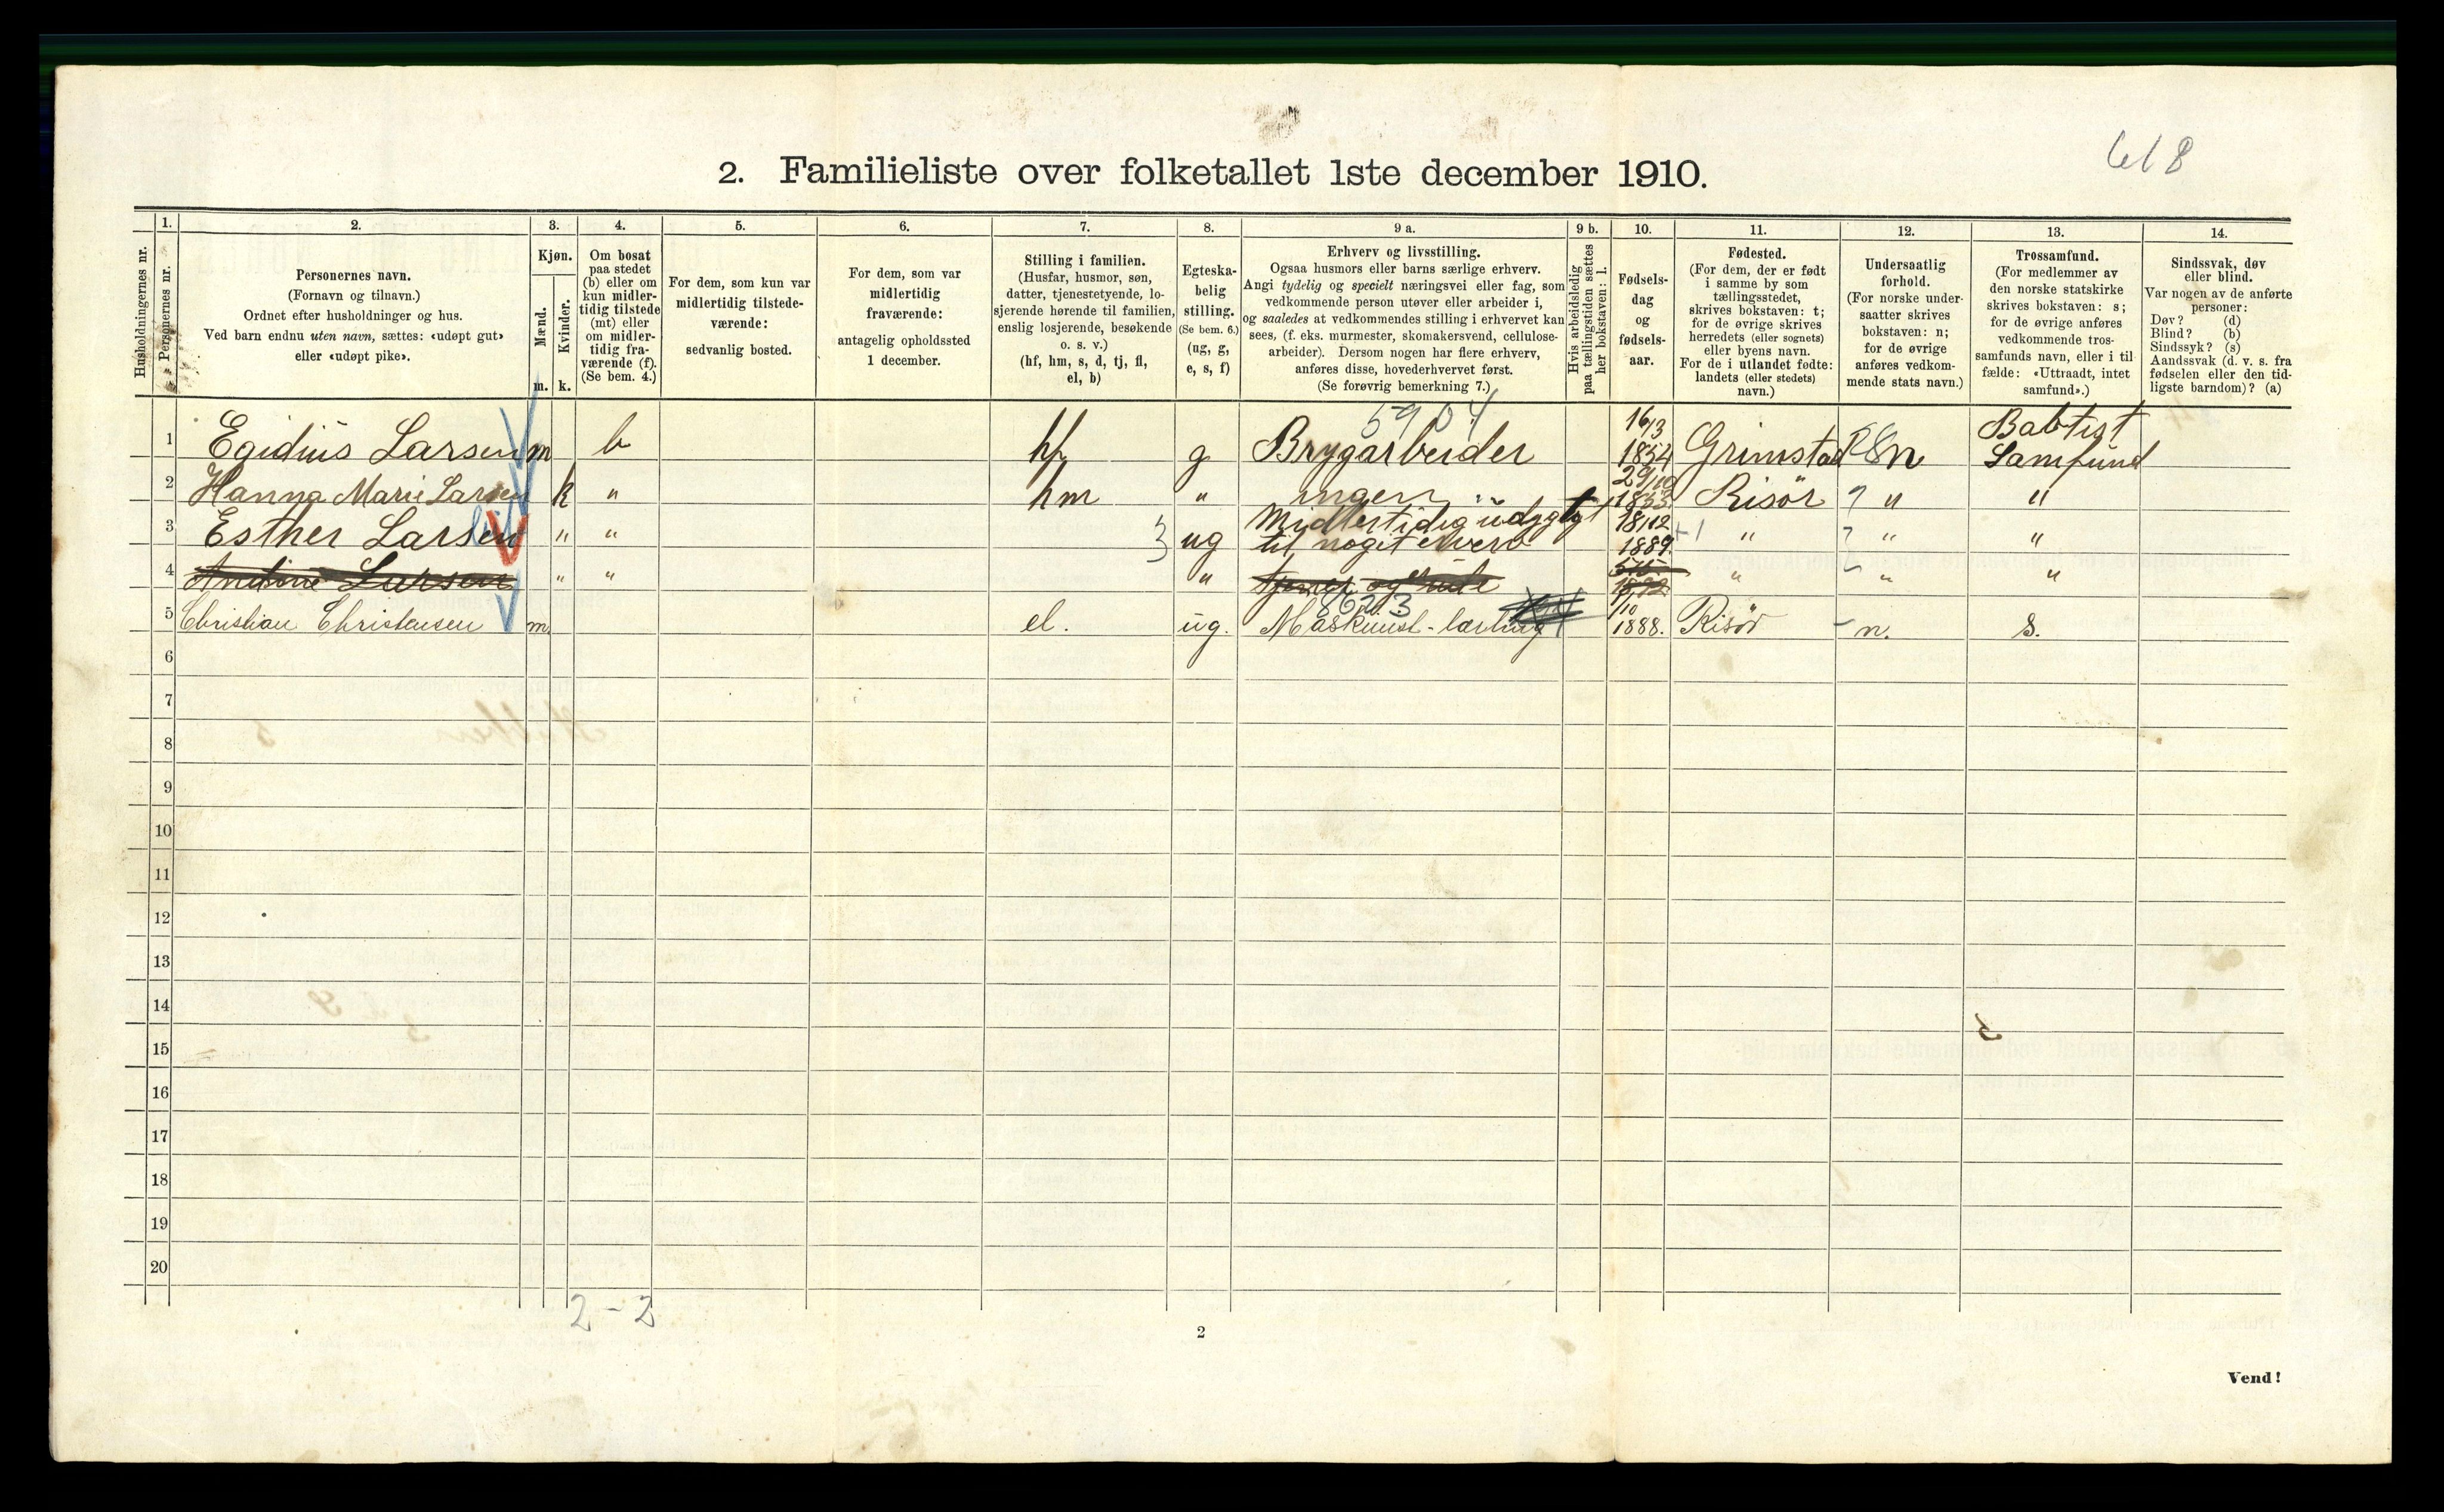 618
2. Familieliste over folketallet 1ste december 1910.
Husholdningernes nr.
1.
Personernes nr.
2.
Personernes navn.
(Fornavn og tilnavn.)
Ordnet efter husholdninger og hus.
Ved barn endnu uten navn, sættes: «udøpt gut»
eller «udøpt pike».
3.
Kjøn.
Mænd.
m.
Kvinder.
k.
4.
Om bosat
paa stedet
(b) eller om
kun midler-
tidig tilstede
(mt) eller
om midler-
tidig fra-
værende (f).
(Se bem. 4.)
5.
For dem, som kun var
midlertidig tilstede-
værende:
sedvanlig bosted.
6.
For dem, som var
midlertidig
fraværende:
antagelig opholdssted
1 december.
7.
Stilling i familien.
(Husfar, husmor, søn,
datter, tjenestetyende, lo-
sjerende hørende til familien,
enslig losjerende, besøkende
o. s. v.)
(hf, hm, s, d, tj, fl,
el, b)
8.
Egteska-
belig
stilling.
(Se bem. 6.)
(ug, g,
e, s, f)
9 a.
Erhverv og livsstilling.
Ogsaa husmors eller barns særlige erhverv.
Angi tydelig og specielt næringsvei eller fag, som
vedkommende person utøver eller arbeider i,
og saaledes at vedkommendes stilling i erhvervet kan
sees, (f. eks. murmester, skomakersvend, cellulose-
arbeider). Dersom nogen har flere erhverv,
anføres disse, hovederhvervet først.
(Se forøvrig bemerkning 7.)
9 b.
Hvis arbeidsledig
paa tællingstiden sættes
her bokstaven: l.
10.
Fødsels-
dag
og
fødsels-
aar.
11.
Fødested.
(For dem, der er født
i samme by som
tællingsstedet,
skrives bokstaven: t;
for de øvrige skrives
herredets (eller sognets)
eller byens navn.
For de i utlandet fødte:
landets (eller stedets)
navn.)
12.
Undersaatlig
forhold.
(For norske under-
saatter skrives
bokstaven: n;
for de øvrige
anføres vedkom-
mende stats navn.)
13.
Trossamfund.
(For medlemmer av
den norske statskirke
skrives bokstaven: s;
for de øvrige anføres
vedkommende tros-
samfunds navn, eller i til-
fælde: «Uttraadt, intet
samfund».)
14.
Sindssvak, døv
eller blind.
Var nogen av de anførte
personer:
Døv? (d)
Blind? (b)
Sindssyk? (s)
Aandssvak (d. v. s. fra
fødselen eller den tid-
ligste barndom)? (a)
5904
1 Egidius Larsen m b hf g Brygarbeider 16/3 1854 Grimstad n Babtist Samfund
2 Hanna Marie Larsen k " hm " ingen 29/10 Risör " "
3 Esther Larsen " " ug Midlertidig udygtigt 18/12
til noget erverv 1889 " " "
4 Larsen " " " " " "
8623
5 Christian Christensen m. el. ug. Maskinist-lærling /10 1888. Risör n. s.
6
7
8
9
10
11
12
13
14
15
16
17
18
19
20
2 - 2
2
Vend!